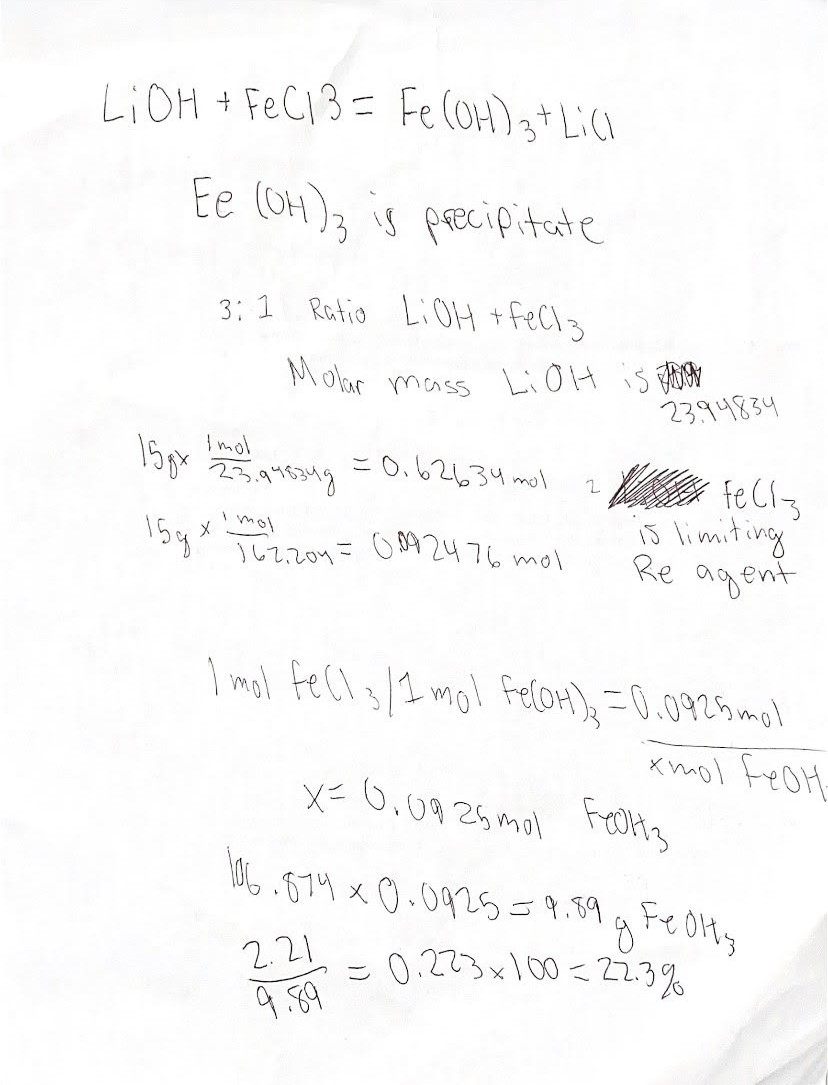 LiOH + FeCl3 = Fe(OH)₃ + LiCl
Ee (OH)₃ is precipitate
3:1 Ratio LiOH + FeCl₃
Molar mass LiOH is
23.94834
15g x 1mol / 23.94834g = 0.62634 mol
15g x 1 mol / 162.204 = 0.092476 mol
FeCl₃
is limiting
Re agent
1 mol FeCl₃ / 1 mol Fe(OH)₃ = 0.0925 mol / x mol FeOH
x = 0.0925 mol FeOH₃
106.874 x 0.0925 = 9.89 g FeOH₃
2.21 / 9.89 = 0.223 x 100 = 22.3%